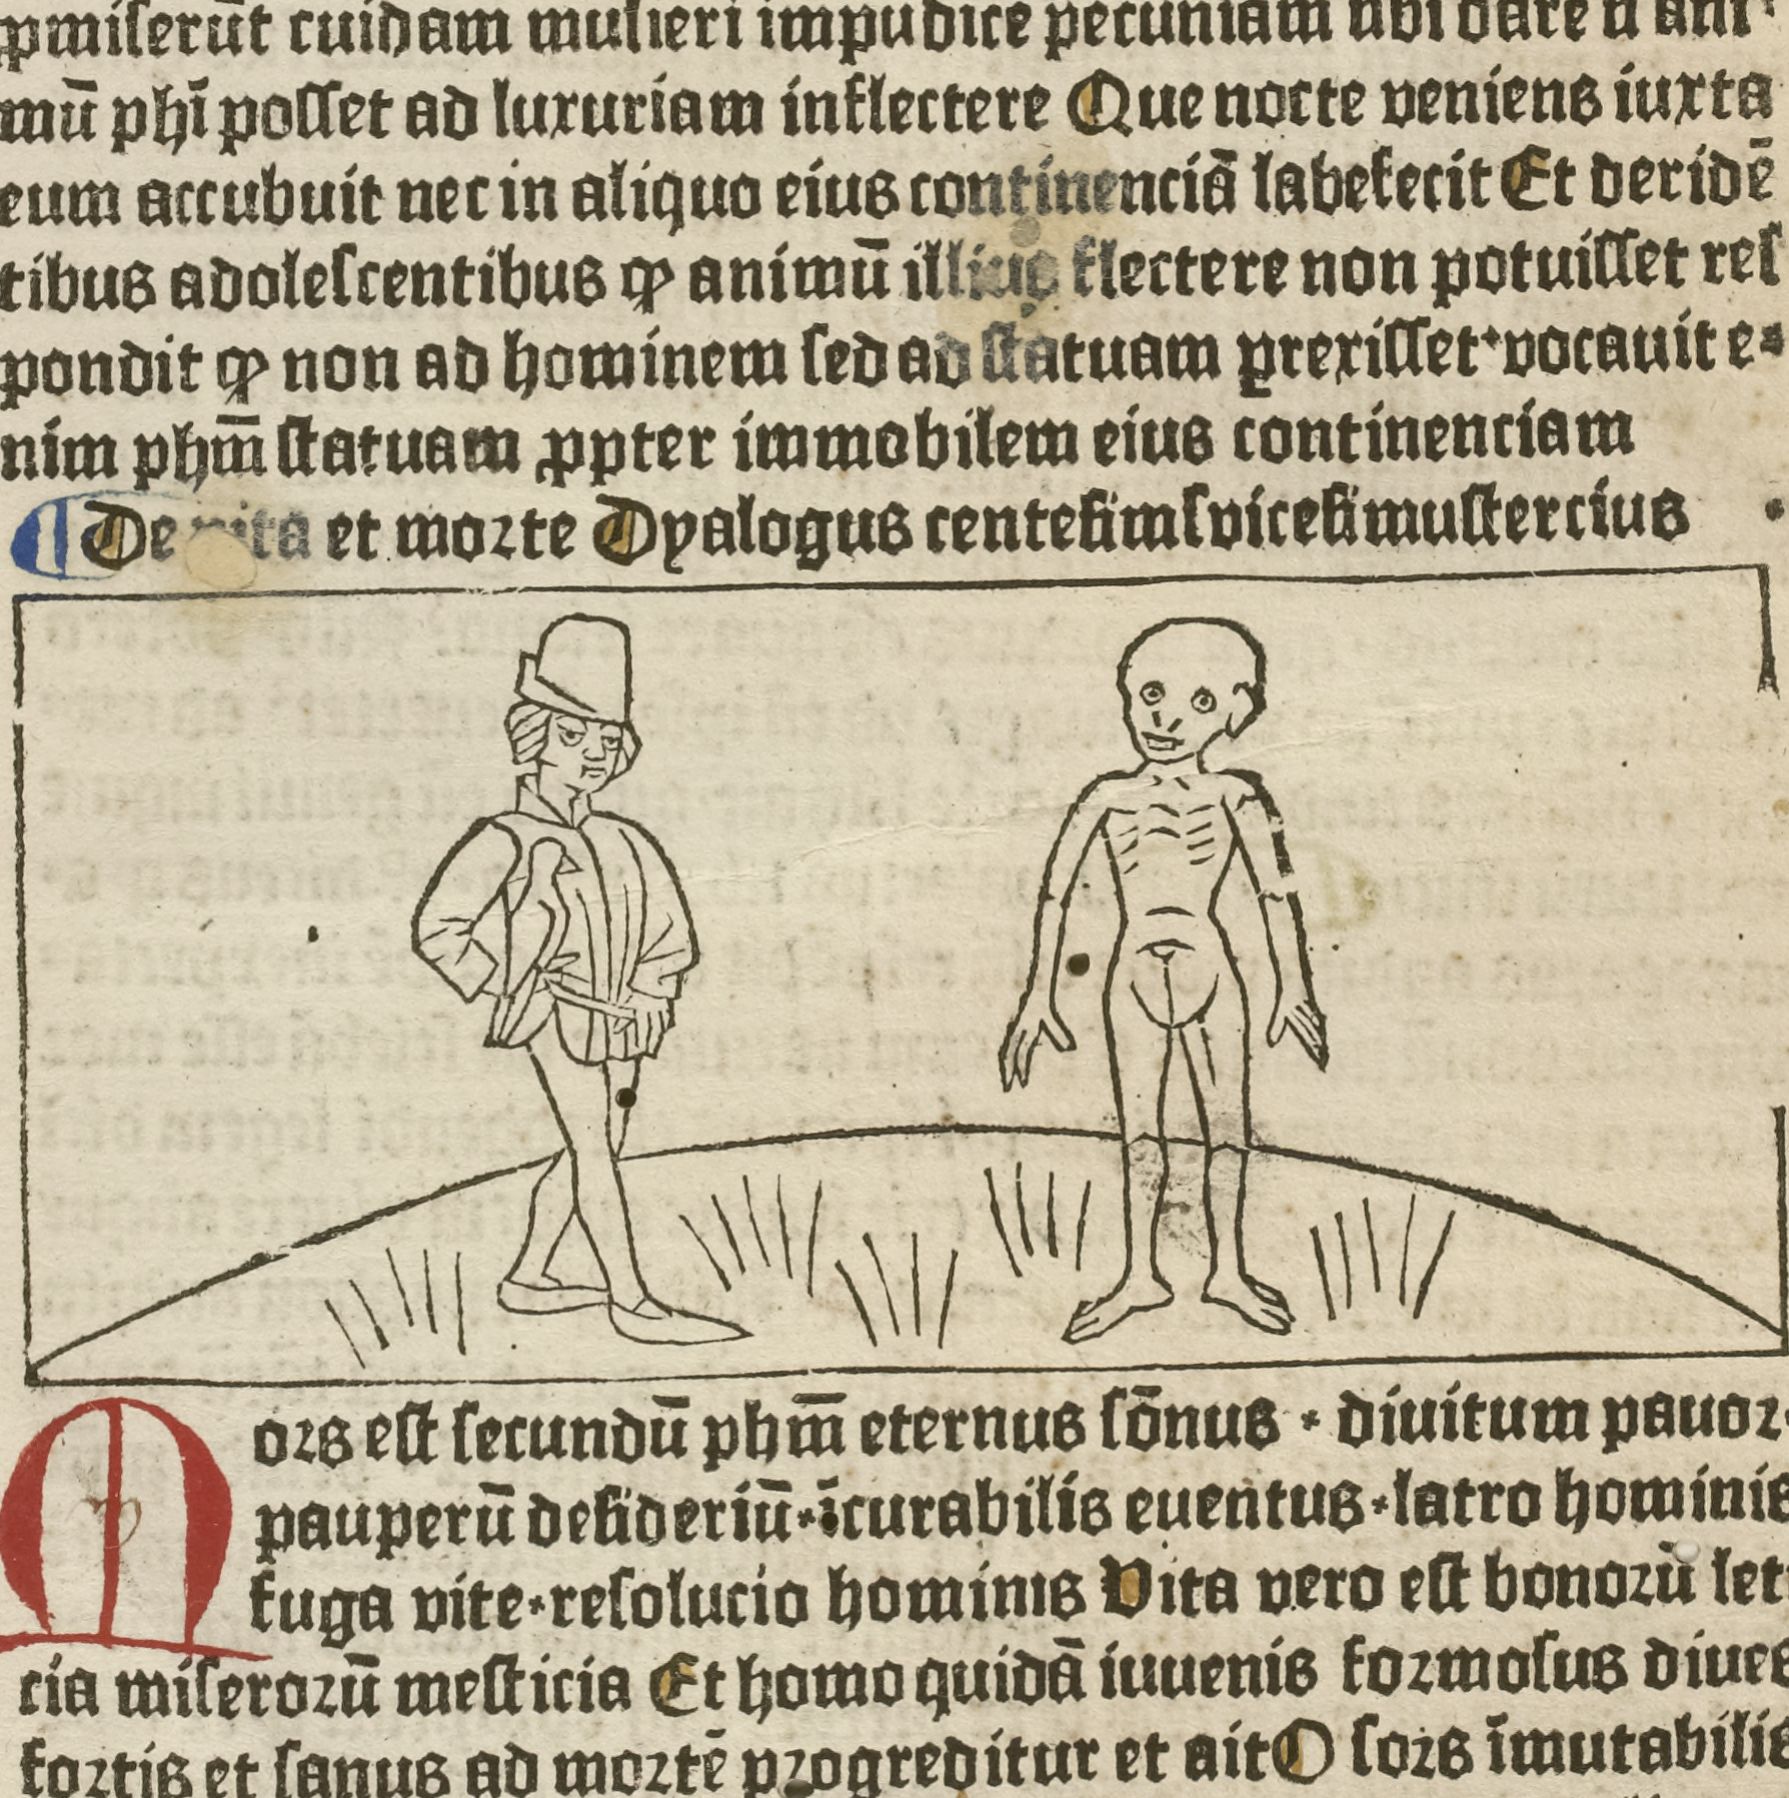 pmiserūt cuidam mulieri impudice pecuniam dare
mū phī posset ad luxuriam inflectere Que nocte veniens iuxta
eum accubuit nec in aliquo eius continenciā labefecit Et deridē
tibus adolescentibus ꝙ animū illius flectere non potuisset res
pondit ꝙ non ad hominem sed ad statuam ꝑrexisset·vocauit e⸗
nim phm̄ statuam ꝓpter immobilem eius continenciam
De vita et morte Dyalogus centesimsvicesimustercius
Mors est secundū phm̄ eternus sōnus · diuitum pauor·
pauperū desideriū·īcurabilis euentus·latro hominis
fuga vite·resolucio hominis Vita vero est bonorū let
cia miserorū mesticia Et homo quidā iuuenis formosus diues
fortis et sanus ad mortē progreditur et ait O sors īmutabilis